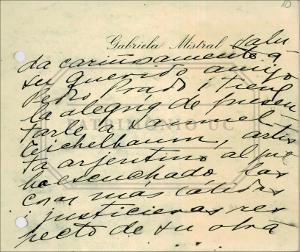 10
Gabriela Mistral salu
da cariñosamente a
su querido amigo
Pedro Prado i tiene
la alegría de presen
tarle a Manuel
Eichelbaum, artis
ta argentino al que
he escuchado las
cosas más cálidas
i justicieras res
pecto de su obra
PATRIMONIO UC